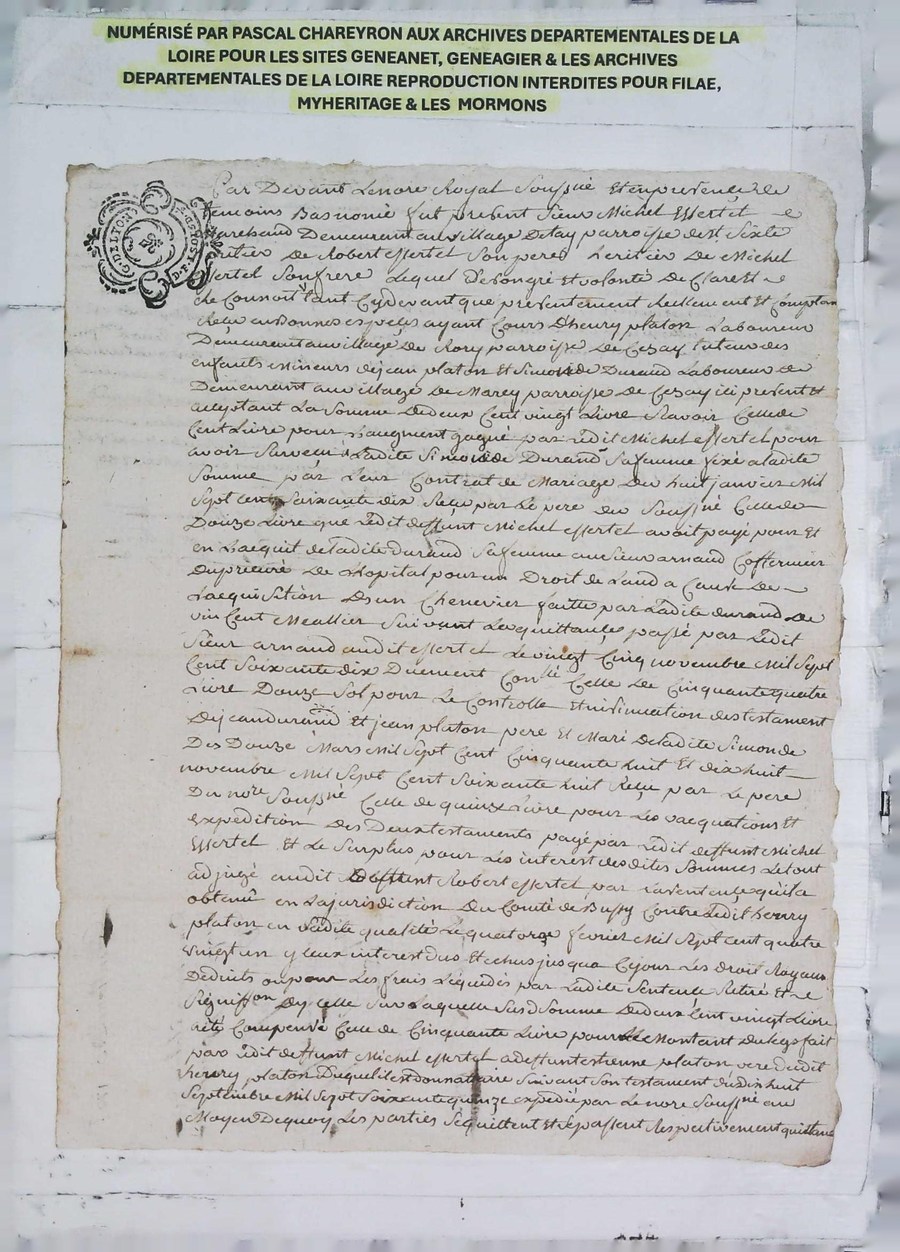 NUMÉRISÉ PAR PASCAL CHAREYRON AUX ARCHIVES DEPARTEMENTALES DE LA
LOIRE POUR LES SITES GENEANET, GENEAGIER & LES ARCHIVES
DEPARTEMENTALES DE LA LOIRE REPRODUCTION INTERDITES POUR FILAE,
MYHERITAGE & LES MORMONS
G. DE LYON
Par Devant Lenore Royal Soussné Et en presence de
temoins Basnomé fut present Sieur Michel Essertel
Marchand Demeurant au village Detay parroisse de st Sixte
heritier de Robert essertel Son pere heritier de Michel
Essertel Son frere Lequel De Songré et volonté De Clare et
Re Connoit tant Cydevant que presentement Reellement Et Comptan
Reçu en Bonnes especes ayant Cours D'henry platon Laboureur
Demeurant au village De Rory parroisse De Cezay tuteur des
enfants Mineurs de jean platon Et Simonde Durand Laboureur
Demeurant au village De Marcy parroisse De Cezay ici present Et
acceptant La Somme De deux Cent vingt Livre Savoir Celle de
Cent Livre pour L'augment gagné par Ledit Michel essertel pour
avoir Survecu a Ladite Simonde Durand Sa femme fixé a ladite
Somme par Leur Contrat de Mariage Du huit janvier Mil
Sept cent Soixante dix Reçu par Le pere du Soussné Celle de
Douze Livre que Ledit deffunt Michel essertel avoit payé pour Et
en L'acquit de Ladite Durand Sa femme au Sieur arnaud Coffermier
Du prieuré De L'hopital pour un Droit de Laud a Cause De
L'acquisition D'un Chenevier faitte par Ladite durand De
vin Cent Meallier Suivant La quittance passé par Ledit
Sieur arnaud audit essertel Le vingt Cinq novembre Mil Sept
Cent Soixante dix Duement Conllé Celle De Cinquante quatre
Livre Douze Sol pour Le Controlle Et insinuation des testament
De jean durand Et jean platon pere Et Mari de ladite Simonde
Des Douze Mars Mil Sept Cent Cinquante huit Et dix huit
novembre Mil Sept Cent Soixante huit Reçu par Le pere
Du nore Soussné Celle de quinze Livre pour Les vacquations Et
expedition des Deux testaments payé par Ledit deffunt Michel
Essertel Et Le Surplus pour Les interest des dites Sommes Le tout
adjugé audit Deffunt Robert essertel par La Sentence qu'il a
obtenue en La jurisdiction Du Comté de Bussy Contre Ledit henry
platon en Ladite qualité Le quatorze fevrier Mil Sept cent quatre
vingt un y Ceux interest dus Et echus jusqu'a Ce jour Les droit Royaux
Deduits ou pour Les frais Liquidés par Ladite Sentence Retiré Et
Signiffon D'y celle Sur Laquelle Susd Somme De deux Cent vingt Livre
a eté Compensé Celle de Cinquante Livre pour Le Montant du legs fait
par Ledit deffunt Michel essertel a deffunt estienne platon pere dudit
henry platon Duquel il est donnataire Suivant Son testament du dix huit
Septembre Mil Sept Soixante quinze expedié par Le nore Soussné au
Moyen De quoy Les parties Se quittent Et Se passent Respectivement quittance